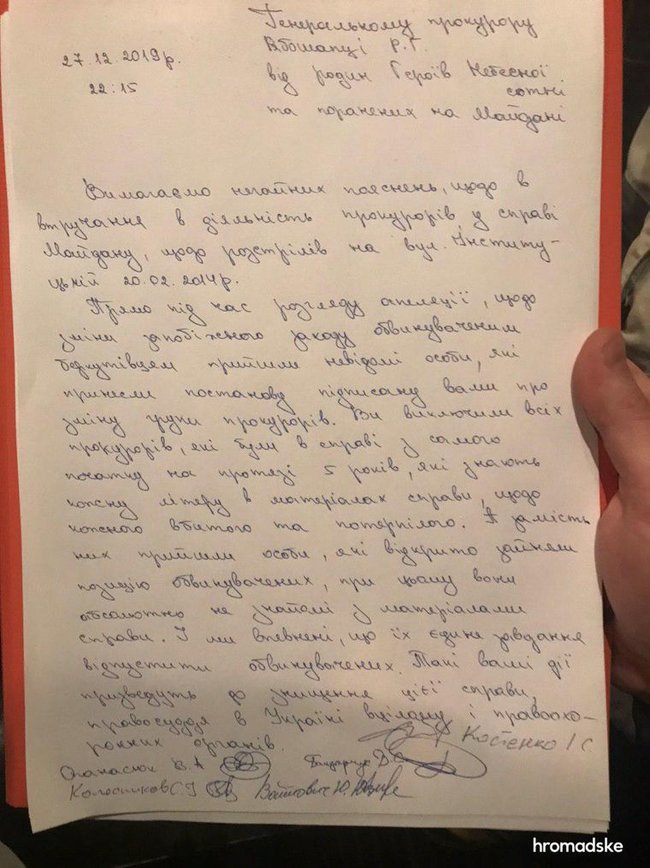 Генеральному прокурору
Рябошапці Р.Г.
27.12.2019р.
22:15
від родин Героїв Небесної
сотні
та поранених на Майдані
Вимагаємо негайних пояснень, щодо в
втручання в діяльність прокурорів у справі
Майдану, щодо розстрілів на вул. Інститу-
цькій 20.02.2014р.
Прямо під час розгляду апеляції, щодо
зміни запобіжного заходу обвинуваченим
беркутівцям прийшли невідомі особи, які
принесли постанову підписану вами про
зміну групи прокурорів. Ви виключили всіх
прокурорів, які були в справі з самого
початку на протязі 5 років, які знають
кожну літеру в матеріалах справи, щодо
кожного вбитого та потерпілого. А замість
них прийшли особи, які відкрито зайняли
позицію обвинувачених, при цьому вони
абсолютно не знайомі з матеріалами
справи. І ми впевнені, що їх єдине завдання
відпустити обвинувачених. Такі ваші дії
призведуть до знищення цієї справи,
правосуддя в Україні вцілому і правоохо-
ронних органів.
Костенко І С.
Опанасюк В.А
Бондарчук
Колосніков С.І
Войтович Ю.
hromadske